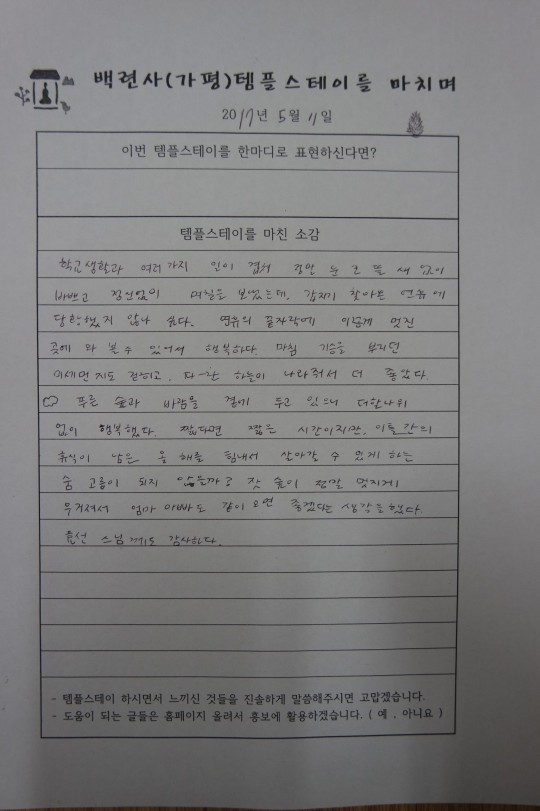 백련사(가평)템플스테이를 마치며
2017년 5월 11일
이번 템플스테이를 한마디로 표현하신다면?
템플스테이를 마친 소감
학교생활과 여러가지 일이 겹쳐 잠깐 눈 뜰 새 없이
바쁘고 정신없이 며칠을 보냈는데, 갑자기 찾아온 연휴에
당황했지 않나 싶다. 연휴의 끝자락에 이렇게 멋진
곳에 와 볼 수 있어서 행복하다. 마침 기승을 부리던
미세먼지도 걷히고, 파-란 하늘이 나와줘서 더 좋았다.
푸른 숲과 바람을 곁에 두고 있으니 더할나위
없이 행복했다. 짧다면 짧은 시간이지만, 이틀 간의
휴식이 남은 올 해를 힘내서 살아갈 수 있게 하는
숨 고름이 되지 않을까? 잣 숲이 정말 멋지게
우거져서 엄마 아빠도 같이 오면 좋겠다는 생각을 했다.
스님께도 감사하다.
- 템플스테이 하시면서 느끼신 것들을 진솔하게 말씀해주시면 고맙겠습니다.
- 도움이 되는 글들은 홈페이지 올려서 홍보에 활용하겠습니다. ( 예 , 아니요 )